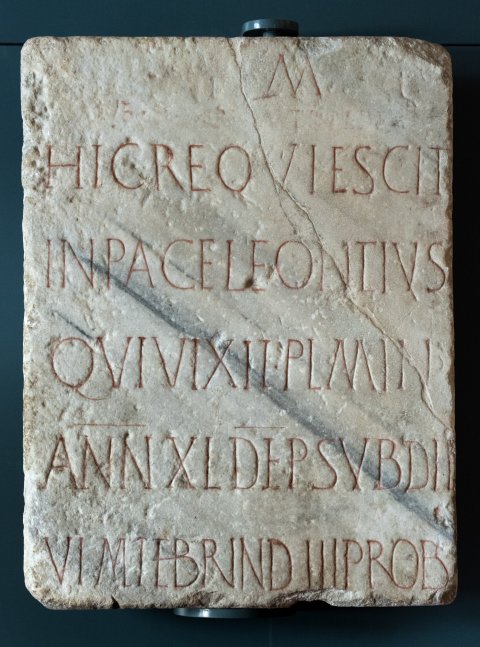 M
HICREQVIESCIT
INPACELEONTIVS
QVIVIXITPLMIN
ANNXLDEPSVBDIE
VIMFEBRINDIIIPROB